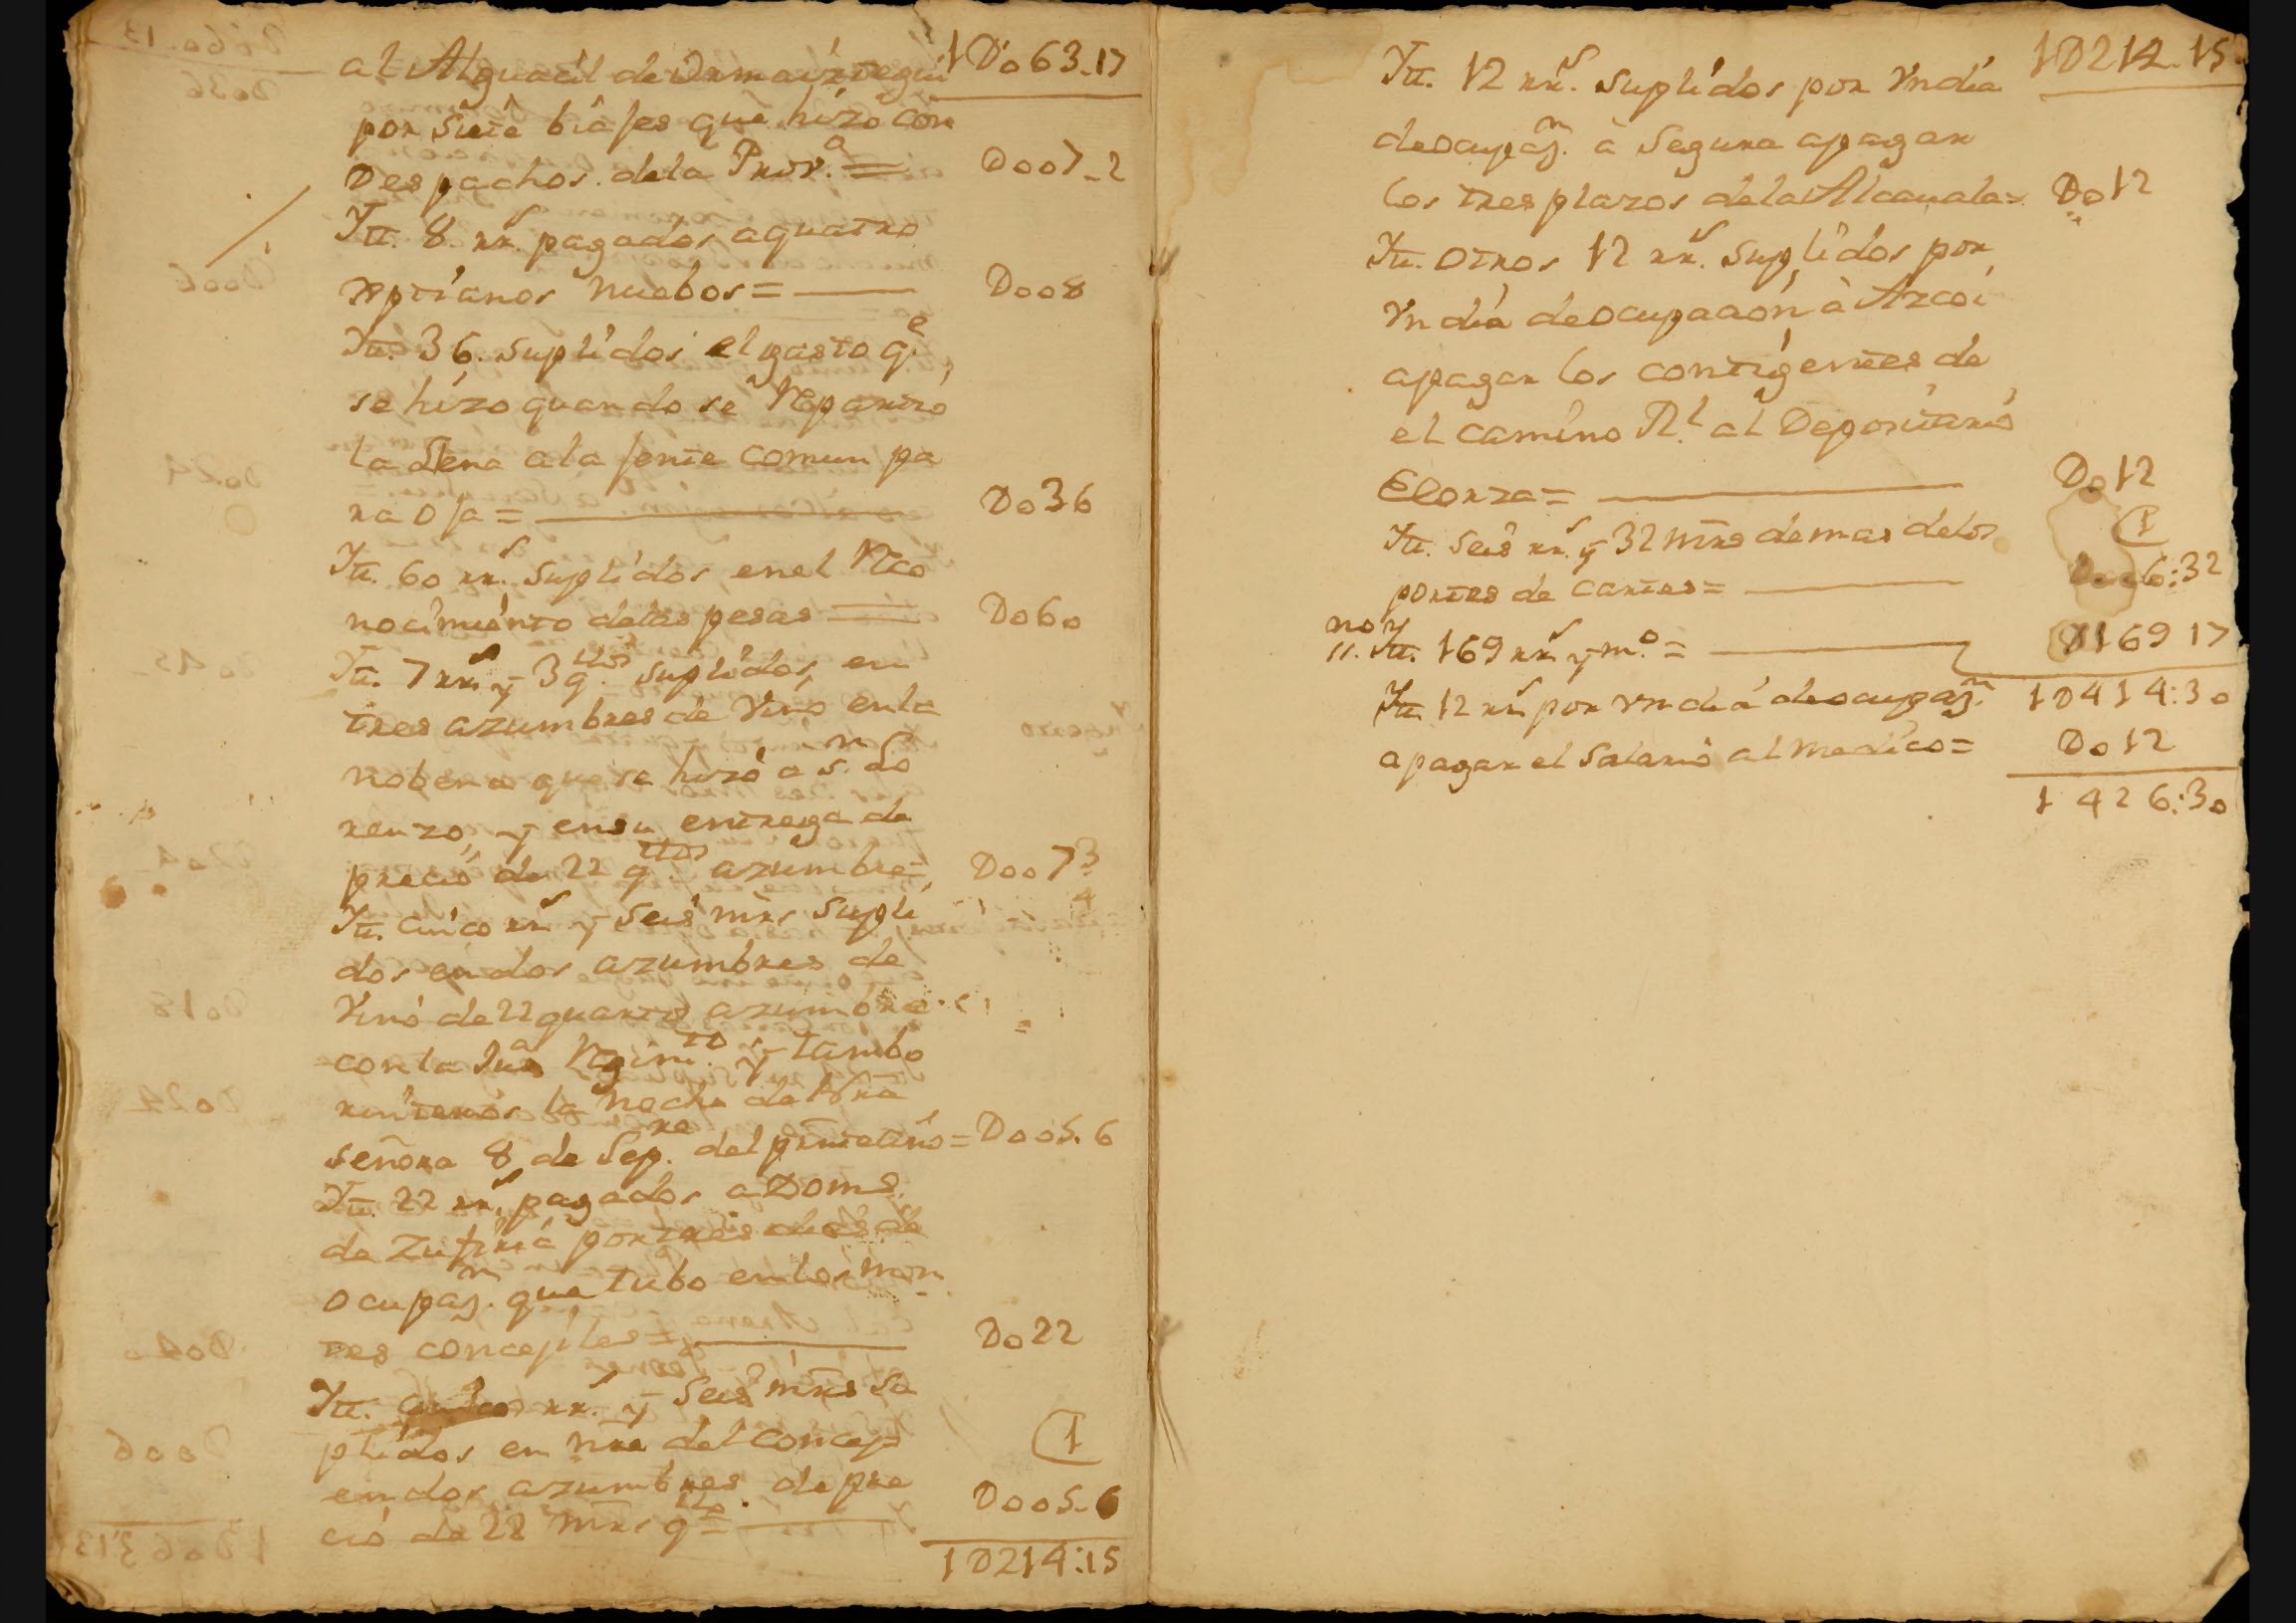 1D063.17
al Alguacil de Vrmaiztegui
por Siete biajes que hizo con
Despachos dela Prov.ª = D007-2
Ytt. 8 rr.s pagados aquatro
xptianos nuebos = D008
Ytt. 36. suplidos el gasto q.e
se hizo quando se Repartio
la Lena ala jente comun pa
ra oja = D036
Ytt. 60 rr.s suplidos, enel Reco
nocimiento delas pesas D060
Ytt. 7 rr.s y 3 q.tos suplidos, en
tres azumbres de Vino enla
nobena que se hizo a S.n Lo
renzo, y ensu entrega de
precio de 22 q.tos azumbre = D007 3/4
Ytt. Cinco rr.s y Seis mrs supli
dos en dos azumbres de
Vino de 22 quartos azumbre
con la Jua Regim.to y tambo
rinteros la noche de Nra
señora 8 de Sep.re del = D005.6
Ytt. 22 rr.s pagados a Doms.
de Zufiria por tres dias de
ocupaz.n que tubo en los mon
tes concejiles = D022
Ytt. Cinco rr.s y Seis mrs Su
plidos en nre del concejo 1
en dos azumbres de pre D005-6
cio de 22 mrs q.to
1D214:15
1D214.15
Ytt. 12 rr.s suplidos por Vn dia
deocupaz.n à Segura apagar
los tres plazos dela Alcauala = D012
Ytt. otros 12 rr.s suplidos por
Vn dia deocupación à Azcoi
apagar los contigentes de
el camino R.l al Depositario
Elorza = D012
1
Ytt. Seis rr.s y 32 mrs demas delos
portes de cartes = D006:32
no y
11. Ytt. 169 rr.s y m.o = D169 17
1D414:30
Ytt. 12 rr.s por Vn dia deocupaz.n
apagar el Salario al Medico = D012
1 426:30